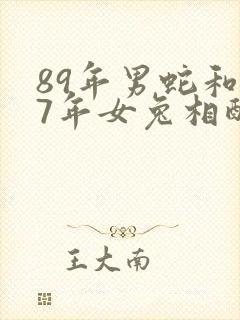 89年男蛇和
7年女兔相配
王大南